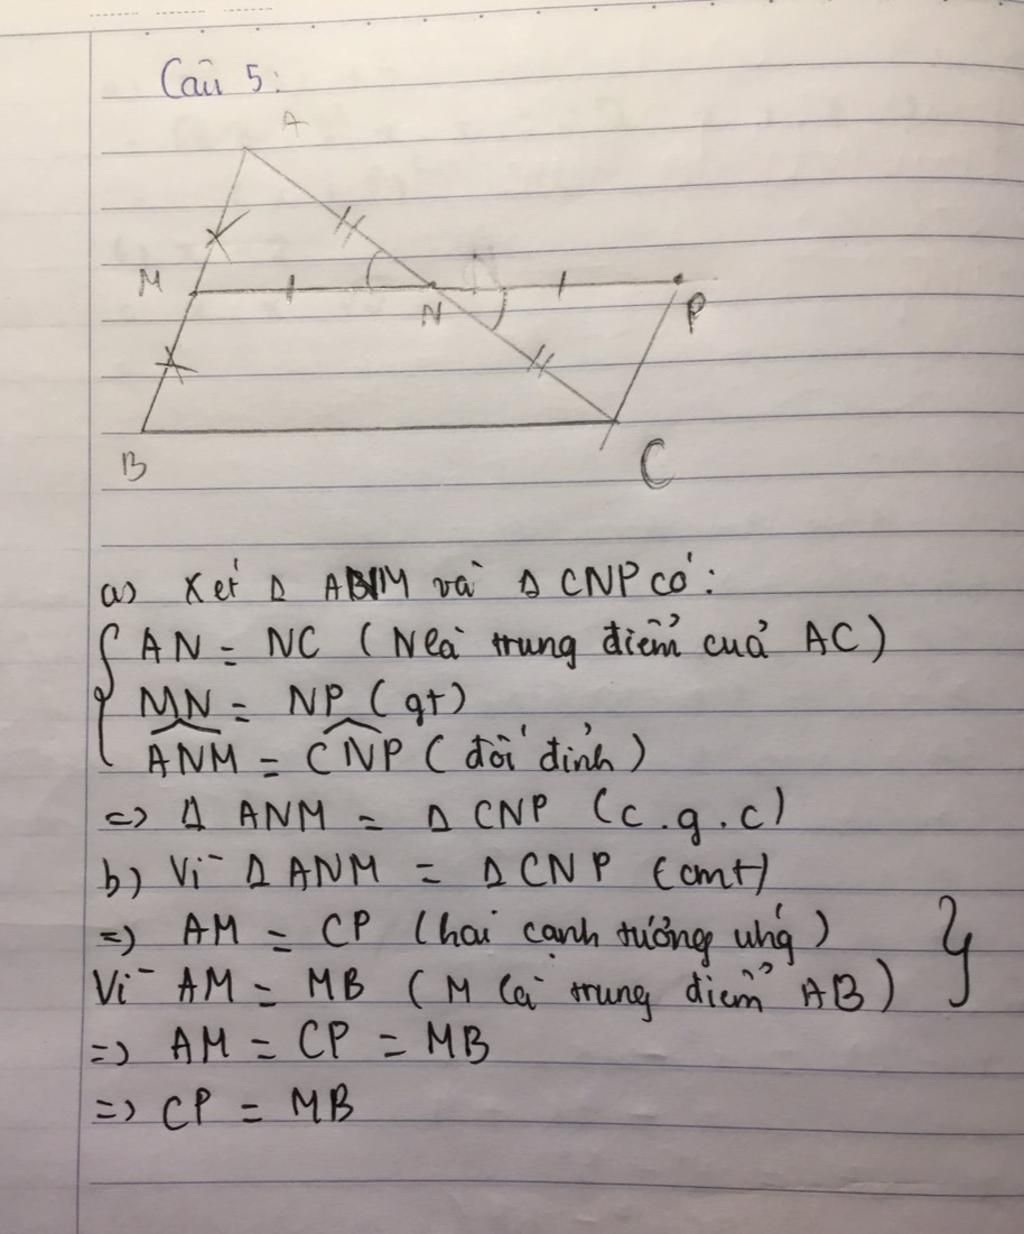 Câu 5:
A
M
N
P
B
C
a) Xét Δ ANM và Δ CNP có:
AN = NC (N là trung điểm của AC)
MN = NP (gt)
ANM = CNP (đối đỉnh)
=> Δ ANM = Δ CNP (c.g.c)
b) Vì Δ ANM = Δ CNP (cmt)
=> AM = CP (hai cạnh tương ứng)
Vì AM = MB (M là trung điểm AB)
=> AM = CP = MB
=> CP = MB